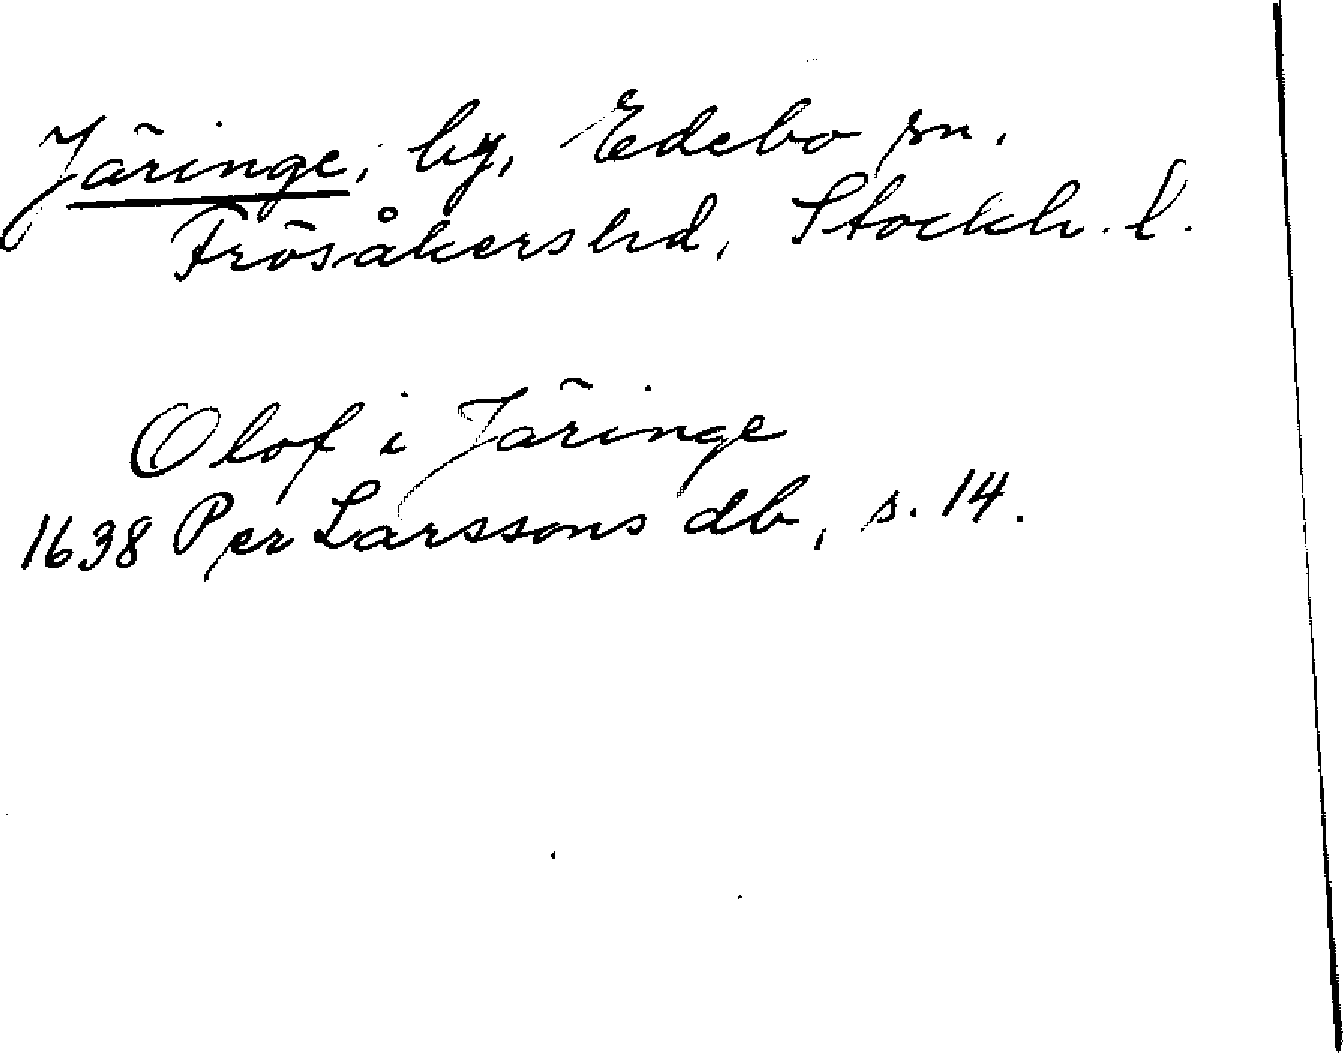 Järinge, by, Edebo sn.
Frösåkers hd, Stockh. l.
Olof i Järinge
1638 Per Larssons db, s. 14.